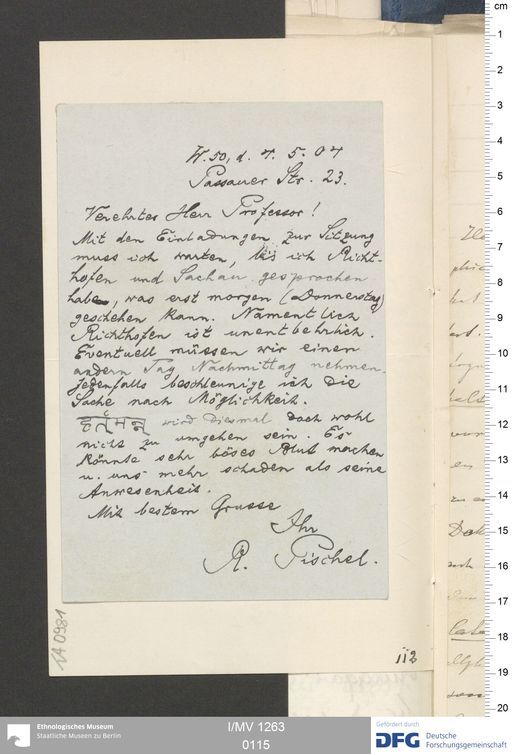 W. 50, d. 4. 5. 04
Passauer Str. 23.
Verehrter Herr Professor!
Mit den Einladungen zur Sitzung
muss ich warten, bis ich Richt-
hofen und Sachau gesprochen
habe, was erst morgen (Donnerstag)
geschehen kann. Namentlich
Richthofen ist unentbehrlich.
Eventuell müssen wir einen
andern Tag Nachmittag nehmen.
Jedenfalls beschleunige ich die
Sache nach Möglichkeit.
wird diesmal doch wohl
nicht zu umgehen sein. Es
könnte sehr böses Blut machen
u. uns mehr schaden als seine
Anwesenheit.
Mit bestem Grusse
Ihr
R. Pischel.
IA 0981
112
Ethnologisches Museum
Staatliche Museen zu Berlin
I/MV 1263
0115
Gefördert durch
DFG Deutsche
Forschungsgemeinschaft
cm
1
2
3
4
5
6
7
8
9
10
11
12
13
14
15
16
17
18
19
20